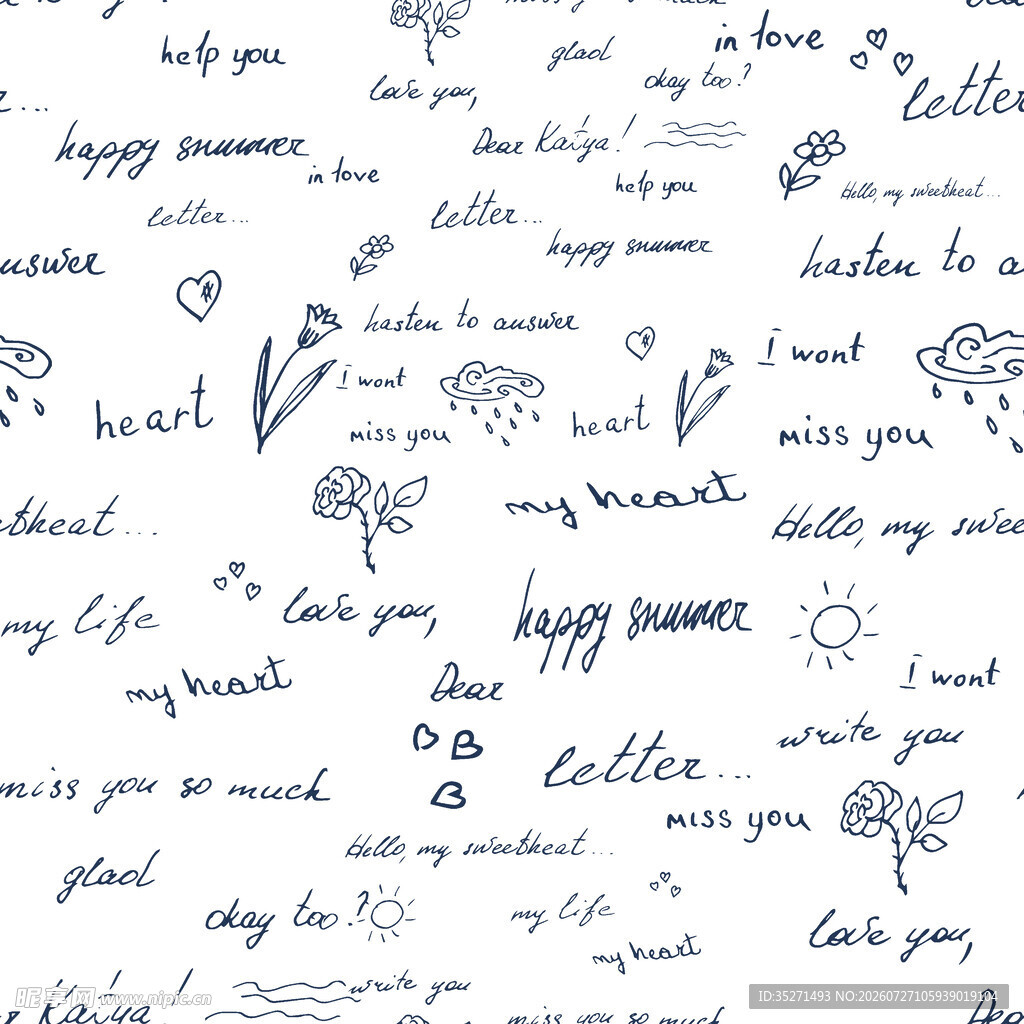 miss you so much
help you
love you,
glad
in love
okay too?
letter
r...
happy snummer
in love
Dear Katya!
help you
Hello, my sweetheat...
letter...
letter...
happy snummer
answer
hasten to a
hasten to answer
I wont
I wont
heart
miss you
heart
miss you
my heart
etheat...
Hello, my swee
my life
love you,
happy snummer
my heart
Dear
I wont
write you
letter...
miss you so much
miss you
Hello, my sweetheat...
glad
okay too?
my life
love you,
my heart
write you
Katya!
miss you so much
Dea
昵享网 www.nipic.cn
ID:35271493 NO:20260727105939019104